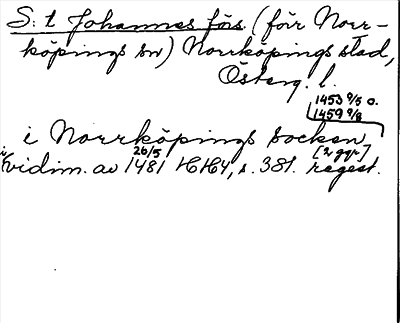 S:t Johannes förs. (förr Norr-
köpings sn) Norrköpings stad,
Österg. l.
1453 9/5 o.
1459 9/8
i Norrköpings socken
[2 ggr]
i vidim. av 26/5 1481 HH4, s. 381. regest.